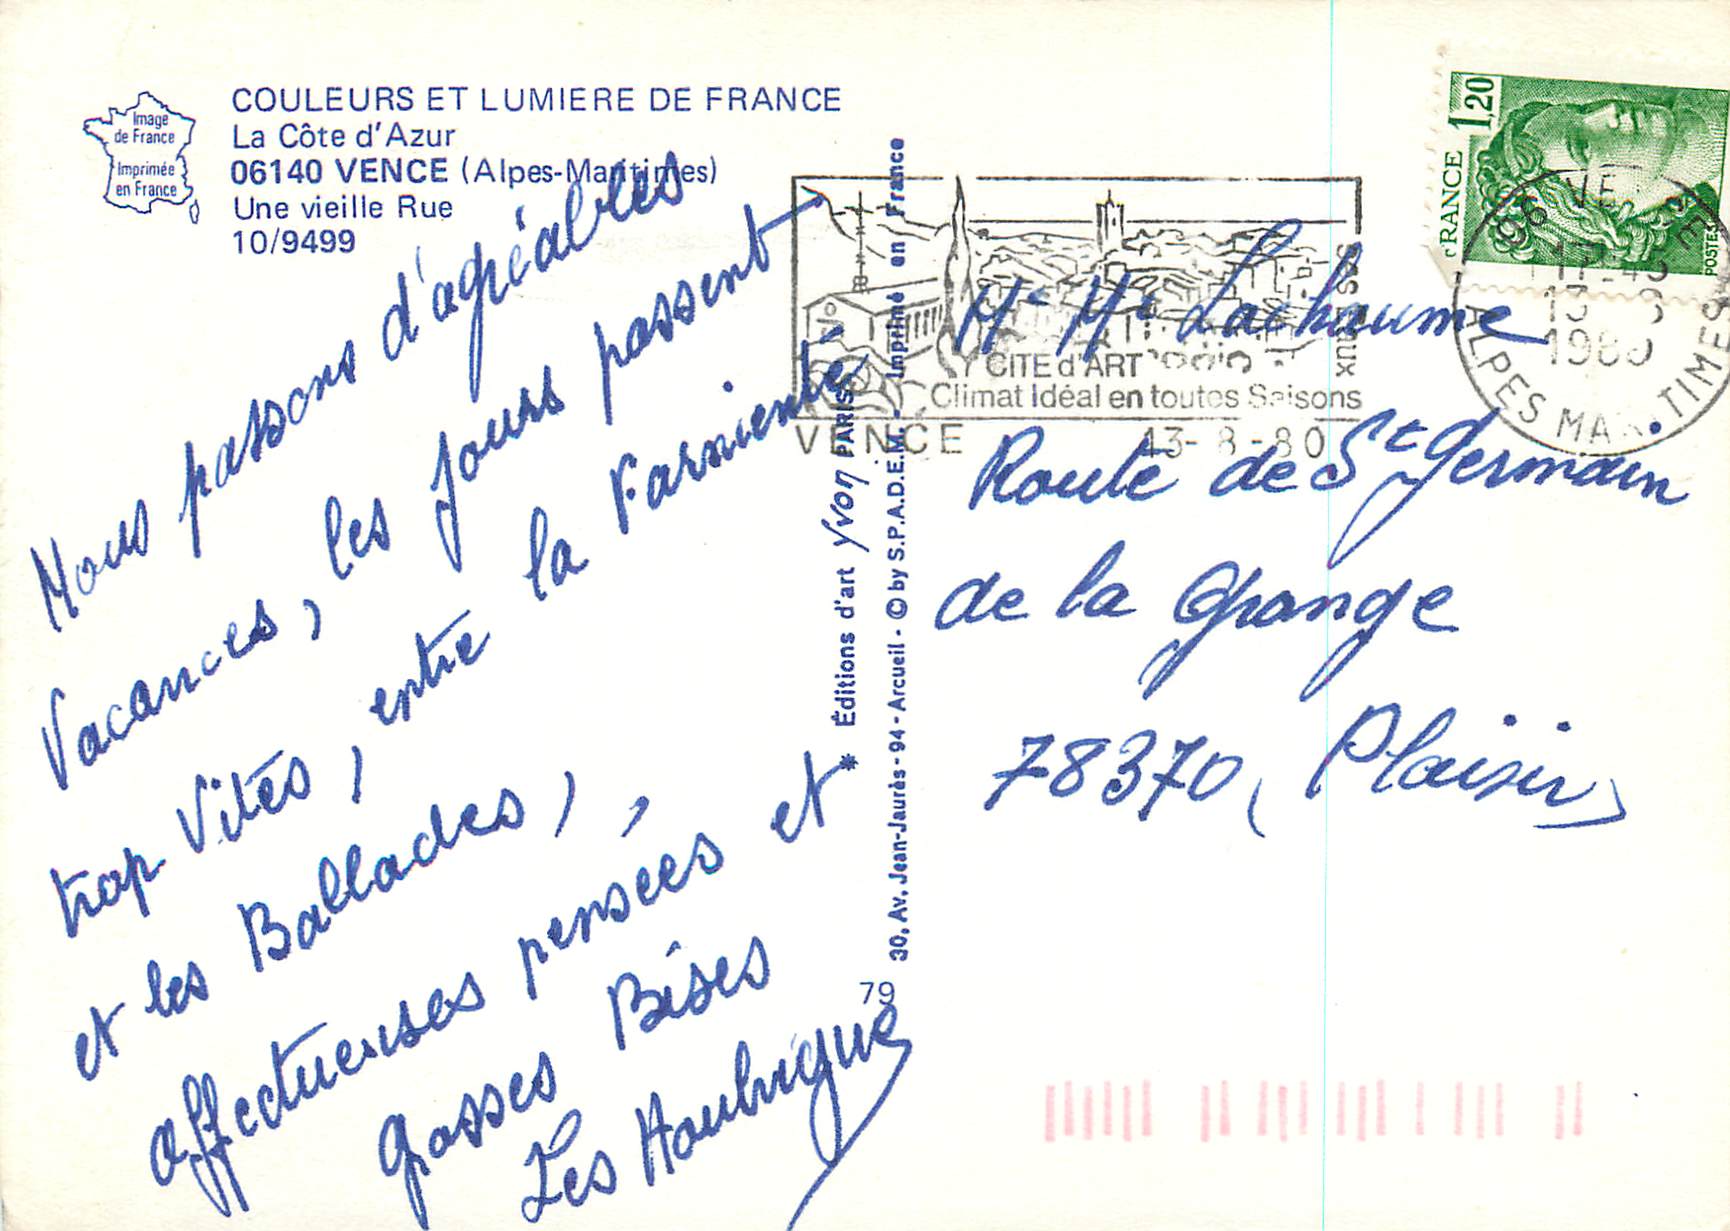 COULEURS ET LUMIERE DE FRANCE
La Côte d'Azur
06140 VENCE (Alpes-Maritimes)
Une vieille Rue
10/9499
Image
de France
Imprimée
en France
Nous passons d'agréables
Vacances, les jours passent
trop Vités, entre la Farnienté
et les Ballades,
affectueuses pensées et
grosses Bises
Les Houbrigue
* Éditions d'art Yvon PARIS
30, Av. Jean-Jaurès - 94 - Arcueil - © by S.P.A.D.E.M. - Imprimé en France
79
CITE d'ART
Climat Idéal en toutes Saisons
VENCE 13-8-80
FRANCE
1,20
POSTES
VENCE
13 8
1980
ALPES MAR.TIMES
Mr Me Lachaume
Route de St Germain
de la Grange
78370, Plaisir